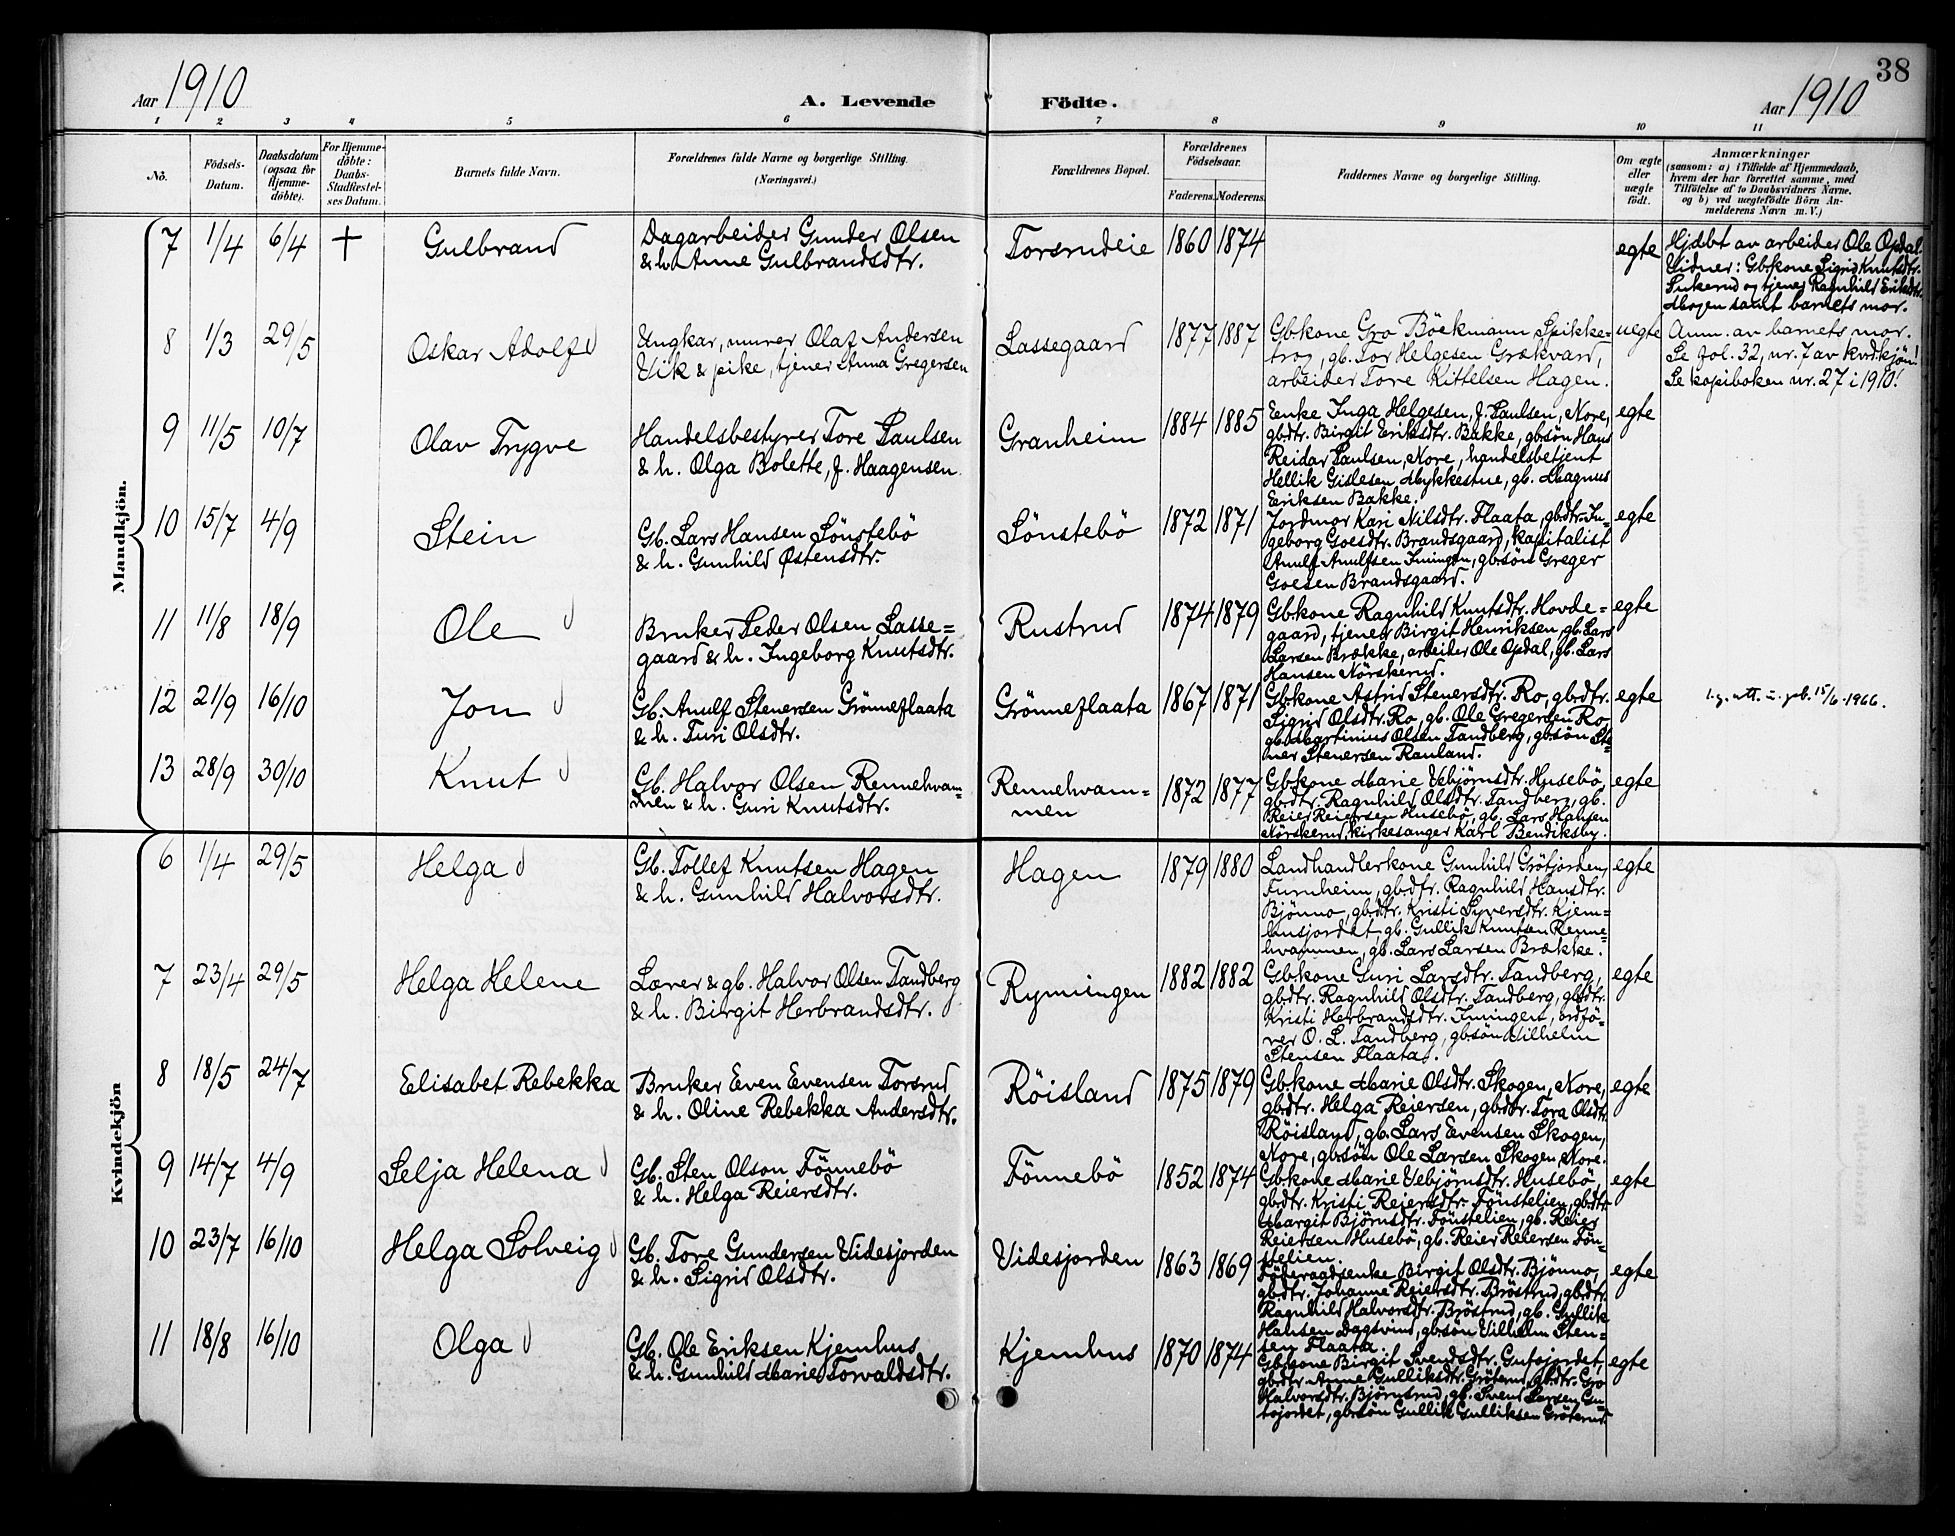 38
Aar 1910
A. Levende Födte.
Aar 1910
1 2 3 4 5 6 7 8 9 10 11
No.
Födsels-Datum.
Daabsdatum (ogsaa for Hjemme-döbte).
For Hjemme-döbte: Daabs-Stadfæstel-ses Datum.
Barnets fulde Navn.
Forældrenes fulde Navne og borgerlige Stilling.
(Næringsvei.)
Forældrenes Bopæl.
Forældrenes Födselsaar.
Faderens. Moderens.
Faddernes Navne og borgerlige Stilling.
Om ægte eller uægte födt.
Anmærkninger
(saasom: a) i Tilfælde af Hjemmedaab,
hvem der har forrettet samme, med
Tilföielse af to Daabsvidners Navne.
og b) ved uægtefödte Börn An-
melderens Navn m. V.)
Mandkjön.
7 1/4 6/4 † Gulbrand
Dagarbeider Gunder Olsen
& h. Anne Gulbrandsdtr.
Torsrudeie 1860 1874
egte
Hjdøbt av arbeider Ole Opdal.
Vidner: Gbkone Sigrid Knutsdtr.
og tjener Ragnhild Eriksdtr.
Mogen samt barnets mor.
8 1/3 29/5 Oskar Adolf
Ungkar, murer Olaf Andersen
Vik & pike, tjener Anna Gregersen
Lassegaard 1877 1887
Gbkone Gro Böckmann Spikke-
trog, gb. Tor Helgesen Grækvard,
arbeider Tore Kittelsen Hagen.
uegte
Anm. av barnets mor.
Se fol. 32, nr. 7 av kvdkjøn!
Se kopiboken nr. 27 i 1910!
9 11/5 10/7 Olav Trygve
Handelsbestyrer Tore Paulsen
& h. Olga Bolette, f. Haagensen.
Granheim 1884 1885
Enke Inga Helgesen, f. Paulsen, Nore,
gbdtr. Birgit Eriksdtr. Bakke, gbsön Hans
Reidar Paulsen, Nore, handelsbetjent
Hellik Gislesen Mykkestue, gb. Magnus
Eriksen Bakke.
egte
10 15/7 4/9 Stein
Gb. Lars Hansen Sönstebö
& h. Gunhild Østensdtr.
Sönstebö 1872 1871
Jordmor Kari Nilsdtr. Flaata, gbdtr. In-
geborg Goesdtr. Brandsgaard, kapitalist
Anulf Anulfsen Imingen, gbsön Greger
Goesen Brandsgaard.
egte
11 11/8 18/9 Ole
Bruker Peder Olsen Lasse-
gaard & h. Ingeborg Knutsdtr.
Rustrud 1874 1879
Gbkone Ragnhild Knutsdtr. Hovde-
gaard, tjener Birgit Henriksen, gb. Lars
Larsen Brække, arbeider Ole Opdal, gb. Lars
Hansen Nörskerud.
egte
12 21/9 16/10 Jon
Gb. Anulf Stenersen Grönneflaata
& h. Turi Olsdtr.
Grönneflaata 1867 1871
Gbkone Astrid Stenersdtr. Ro, gbdtr.
Sigrid Olsdtr. Ro, gb. Ole Gregersen Ro,
gb. Martinius Olsen Tandberg, gbsön Ste-
ner Stenersen Rauland.
egte
15/6-1966.
13 28/9 30/10 Knut
Gb. Halvor Olsen Rennehvam-
men & h. Guri Knutsdtr.
Rennehvam-
men
1872 1877
Gbkone Marie Vebjörnsdtr. Husebö,
gbdtr. Ragnhild Olsdtr. Tandberg, gb.
Reier Reiersen Husebö, gb. Lars Hansen
Nörskerud, kirkesanger Karl Bendiksby.
egte
Kvindekjön
6 1/4 29/5 Helga
Gb. Tollef Knutsen Hagen
& h. Gunhild Halvorsdtr.
Hagen 1879 1880
Landhandlerkone Gunhild Gröfjorden,
Furnheim, gbdtr. Ragnhild Hansdtr.
Bjönno, gbdtr. Kristi Syversdtr. Kjem-
husjordet, gb. Gullik Knutsen Renne-
hvammen, gb. Lars Larsen Brække.
egte
7 23/4 29/5 Helga Helene
Lærer & gb. Halvor Olsen Tandberg
& h. Birgit Herbrandsdtr.
Rymingen 1882 1882
Gbkone Guri Larsdtr. Tandberg,
gbdtr. Ragnhild Olsdtr. Tandberg, gbdtr.
Kristi Herbrandsdtr. Imingen, ordfö-
rer O. L. Tandberg, gbsön Vilhelm
Stensen Flaata.
egte
8 18/5 24/7 Elisabet Rebekka
Bruker Even Evensen Torsrud
& h. Oline Rebekka Andersdtr.
Röisland 1875 1879
Gbkone Marie Olsdtr. Skogen, Nore,
gbdtr. Helga Reiersen, gbdtr. Tora Olsdtr.
Röisland, gb. Lars Evensen Skogen,
Nore, gbsön Ole Larsen Skogen, Nore.
egte
9 14/7 4/9 Selja Helena
Gb. Sten Olson Fönnebö
& h. Helga Reiersdtr.
Fönnebö 1852 1874
Gbkone Marie Vebjörnsdtr. Husebö,
gbdtr. Kristi Reiersdtr. Fönstelien, gbdtr.
Margit Björnsdtr. Fönstelien, gb. Reier
Reiersen Husebö, gb. Reier Reiersen Fön-
stelien.
egte
10 23/7 16/10 Helga Solveig
Gb. Tore Gundersen Videsjorden
& h. Sigrid Olsdtr.
Videsjorden 1863 1869
Föderaadsenke Birgit Olsdtr. Bjönno,
gbdtr. Johanne Reiersdtr. Bröstrud, gbdtr.
Ragnhild Halvorsdtr. Bröstrud, gb. Gullik
Hansen Dagsvind, gbsön Vilhelm Sten-
sen Flaata.
egte
11 18/8 16/10 Olga
Gb. Ole Eriksen Kjemhus
& h. Gunhild Marie Torvaldsdtr.
Kjemhus 1870 1874
Gbkone Birgit Svendsdtr. Gutojordet,
gbdtr. Anne Gulliksdtr. Gröterud, gbdtr. Gro
Halvorsdtr. Björnsrud, gb. Svend Larsen Gu-
tojordet, gbsön Gullik Gulliksen Gröterud.
egte